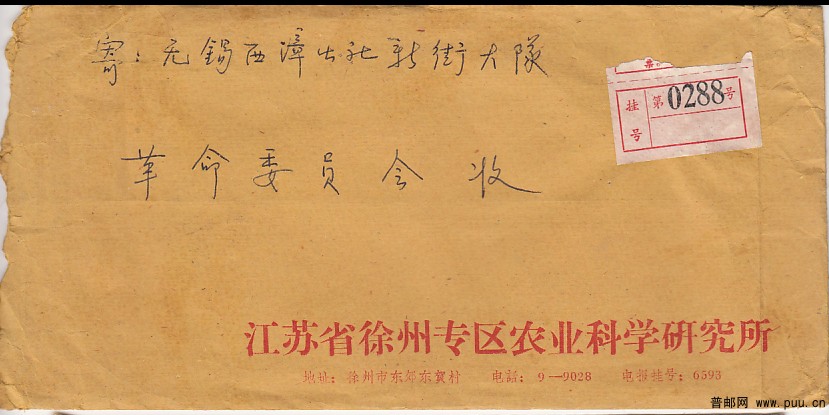 寄：无锡西漳公社新街大队
挂号
第0288号
革命委员会 收
江苏省徐州专区农业科学研究所
地址：徐州市东郊东贺村 电話：9—9028 电报挂号：6593
普邮网 www.puu.cn